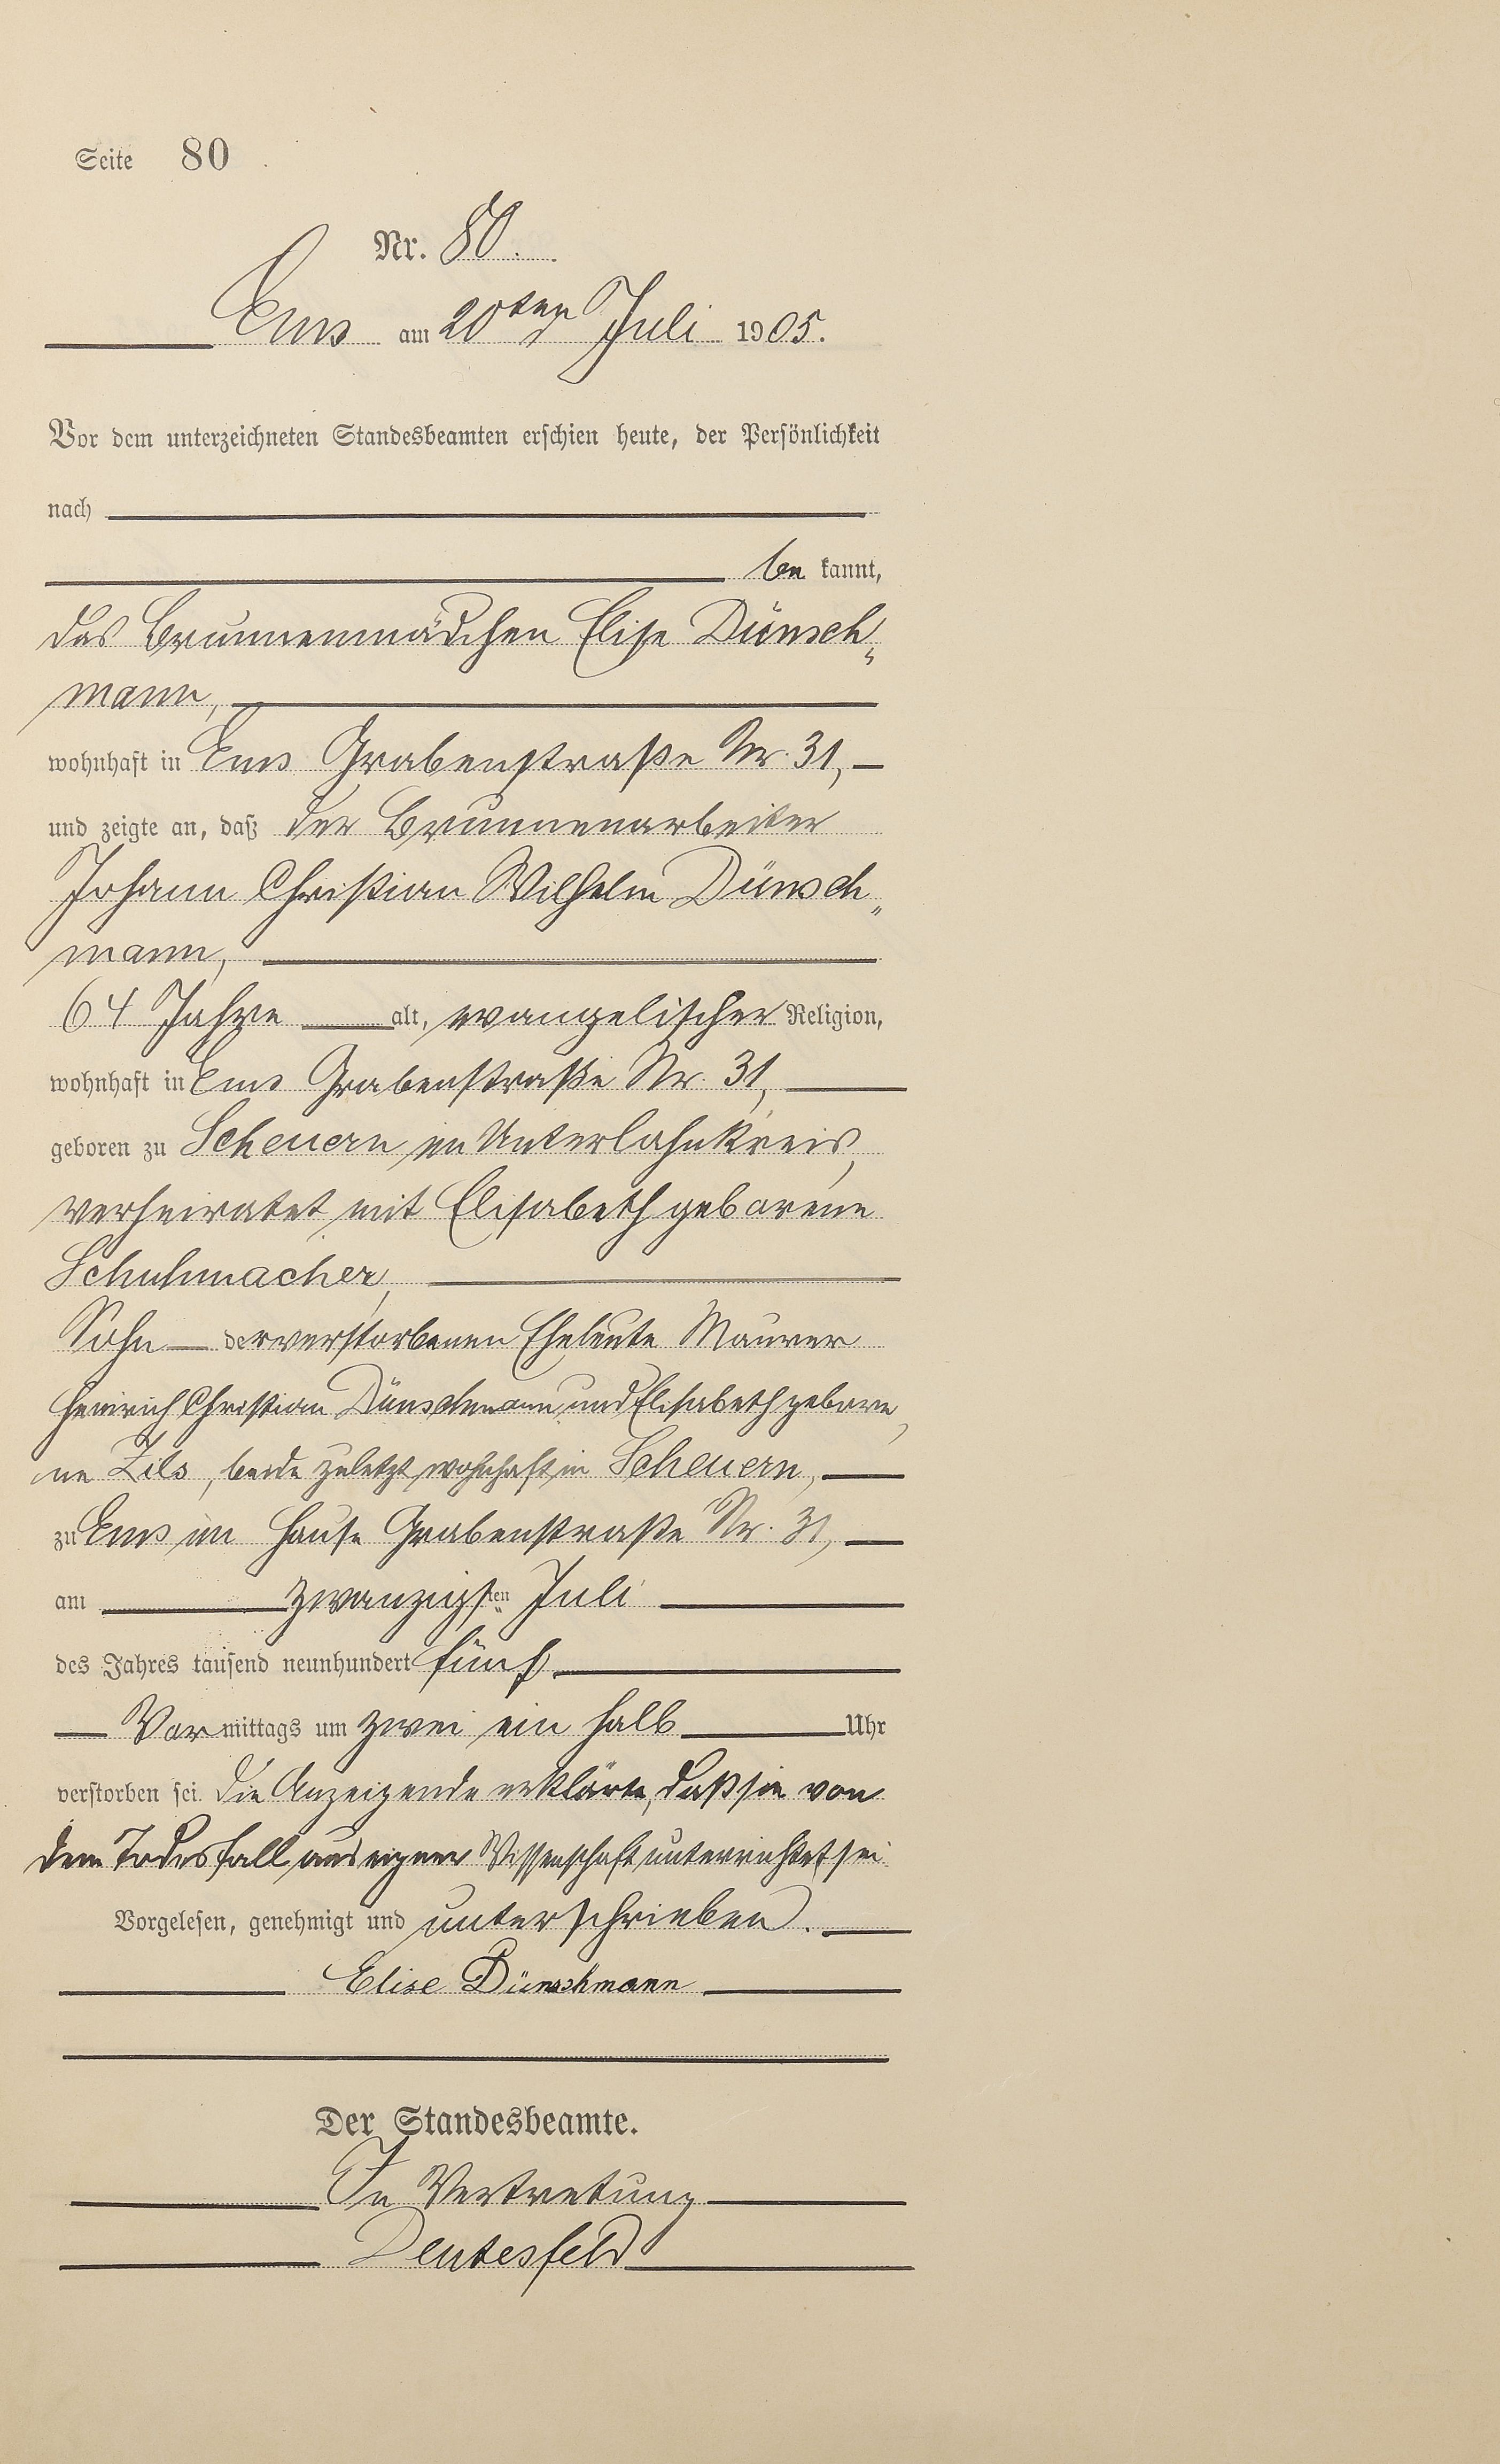 Seite 80
Nr. 80.
Ems am 20ten Juli 1905.
Vor dem unterzeichneten Standesbeamten erschien heute, der Persönlichkeit
nach
be kannt,
das Brunnenmädchen Elise Dünsch„
mann,
wohnhaft in Ems Grabenstraße Nr. 31,
und zeigte an, daß der Brunnenarbeiter
Johann Christian Wilhelm Dünsch„
mann,
64 Jahre alt, evangelischer Religion,
wohnhaft in Ems Grabenstraße Nr. 31,
geboren zu Scheuern im Unterlahnkreis,
verheiratet mit Elisabeth geborene
Schuhmacher,
Sohn der verstorbenen Eheleute Maurer
Heinrich Christian Dünschmann und Elisabeth gebore„
ne Zils, beide zuletzt wohnhaft in Scheuern,
zu Ems im Hause Grabenstraße Nr. 31,
am zwanzigsten Juli
des Jahres tausend neunhundert fünf
Vor mittags um zwei ein halb Uhr
verstorben sei. Die Anzeigende erklärte, daß sie von
dem Todesfall aus eigener Wissenschaft unterrichtet sei
Vorgelesen, genehmigt und unterschrieben.
Elise Dünschmann
Der Standesbeamte.
In Vertretung
Deutesfeld